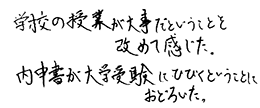 学校の授業が大事だということを
改めて感じた。
内申書が大学受験にひびくということに
おどろいた。